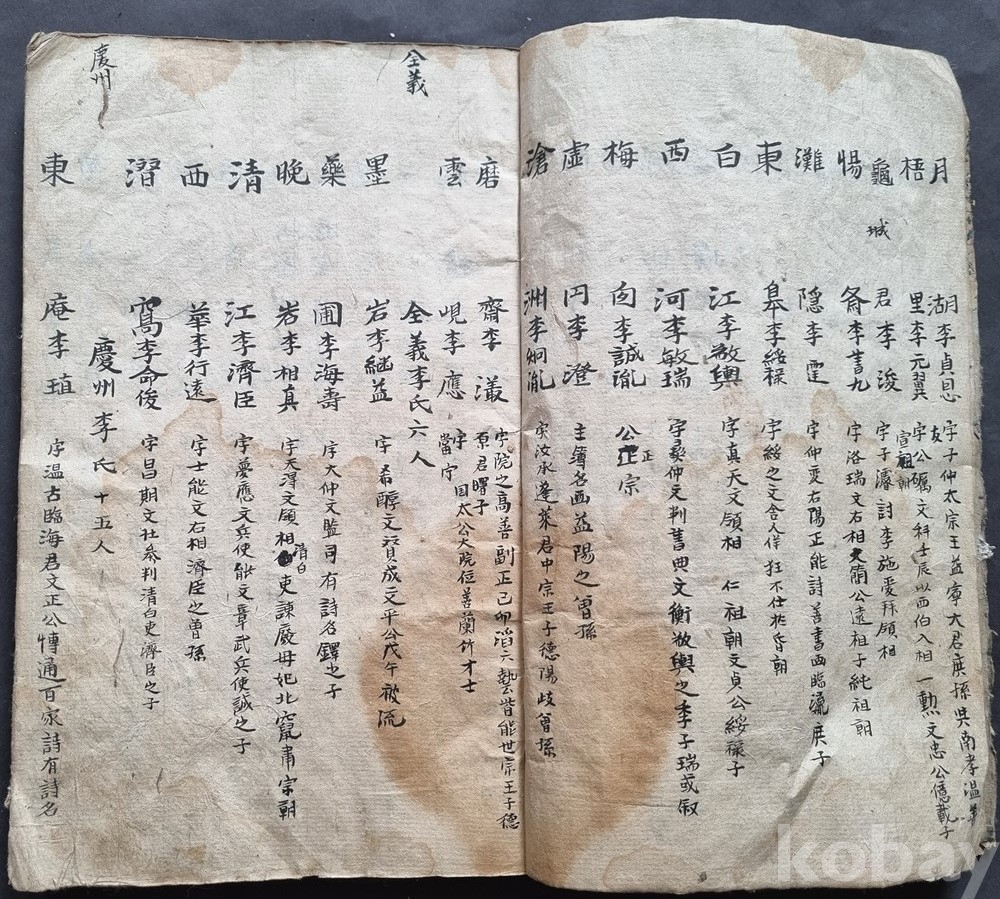 月湖李貞恩 字子仲太宗王益寧大君庶孫與南孝溫等友
梧里李元翼 字公礪文科壬辰以西伯入相一勲文忠公億載子 宣祖朝
龜城君李浚 字子濬討李施愛拜領相
惕斎李書九 字洛瑞文右相文簡公遠祖子純祖朝
灘隠李霆 字仲燮右陽正能詩善書西臨瀛庶子
東皐李綏祿 字綏之文舍人佯狂不仕於昏朝
白江李敬輿 字真天文領相 仁祖朝文貞公綏祿子
西河李敏瑞 字彜仲文判書典文衡敬輿之季子瑞或叙
梅囱李誠胤 公正宗 正
虛円李澄 主簿名西益陽之曾孫
滄洲李炯胤 字汝承蓬萊君中宗王子德陽岐曾孫
磨齋李㵧 字院之高善副正己卯滔六藝皆能世宗王子德原君曙子
雲峴李應 字 國太公大院位善蘭竹才士 當宁
全義
全義李氏六人
墨岩李継益 字希醇文賛成文平公戊午被流
藥圃李海壽 字大仲文監司有詩名鐸之子
晩岩李相真 字天澤文領相 清白吏諫廢母妃北竄肅宗朝
清江李濟臣 字夢應文兵使能文章武兵使諴之子
西華李行遠 字士能文右相濟臣之曾孫
潛窩李命俊 字昌期文壯參判清白吏濟臣之子
慶州
慶州李氏 十五人
東庵李瑱 字溫古臨海君文正公慱通百家詩有詩名
kobay